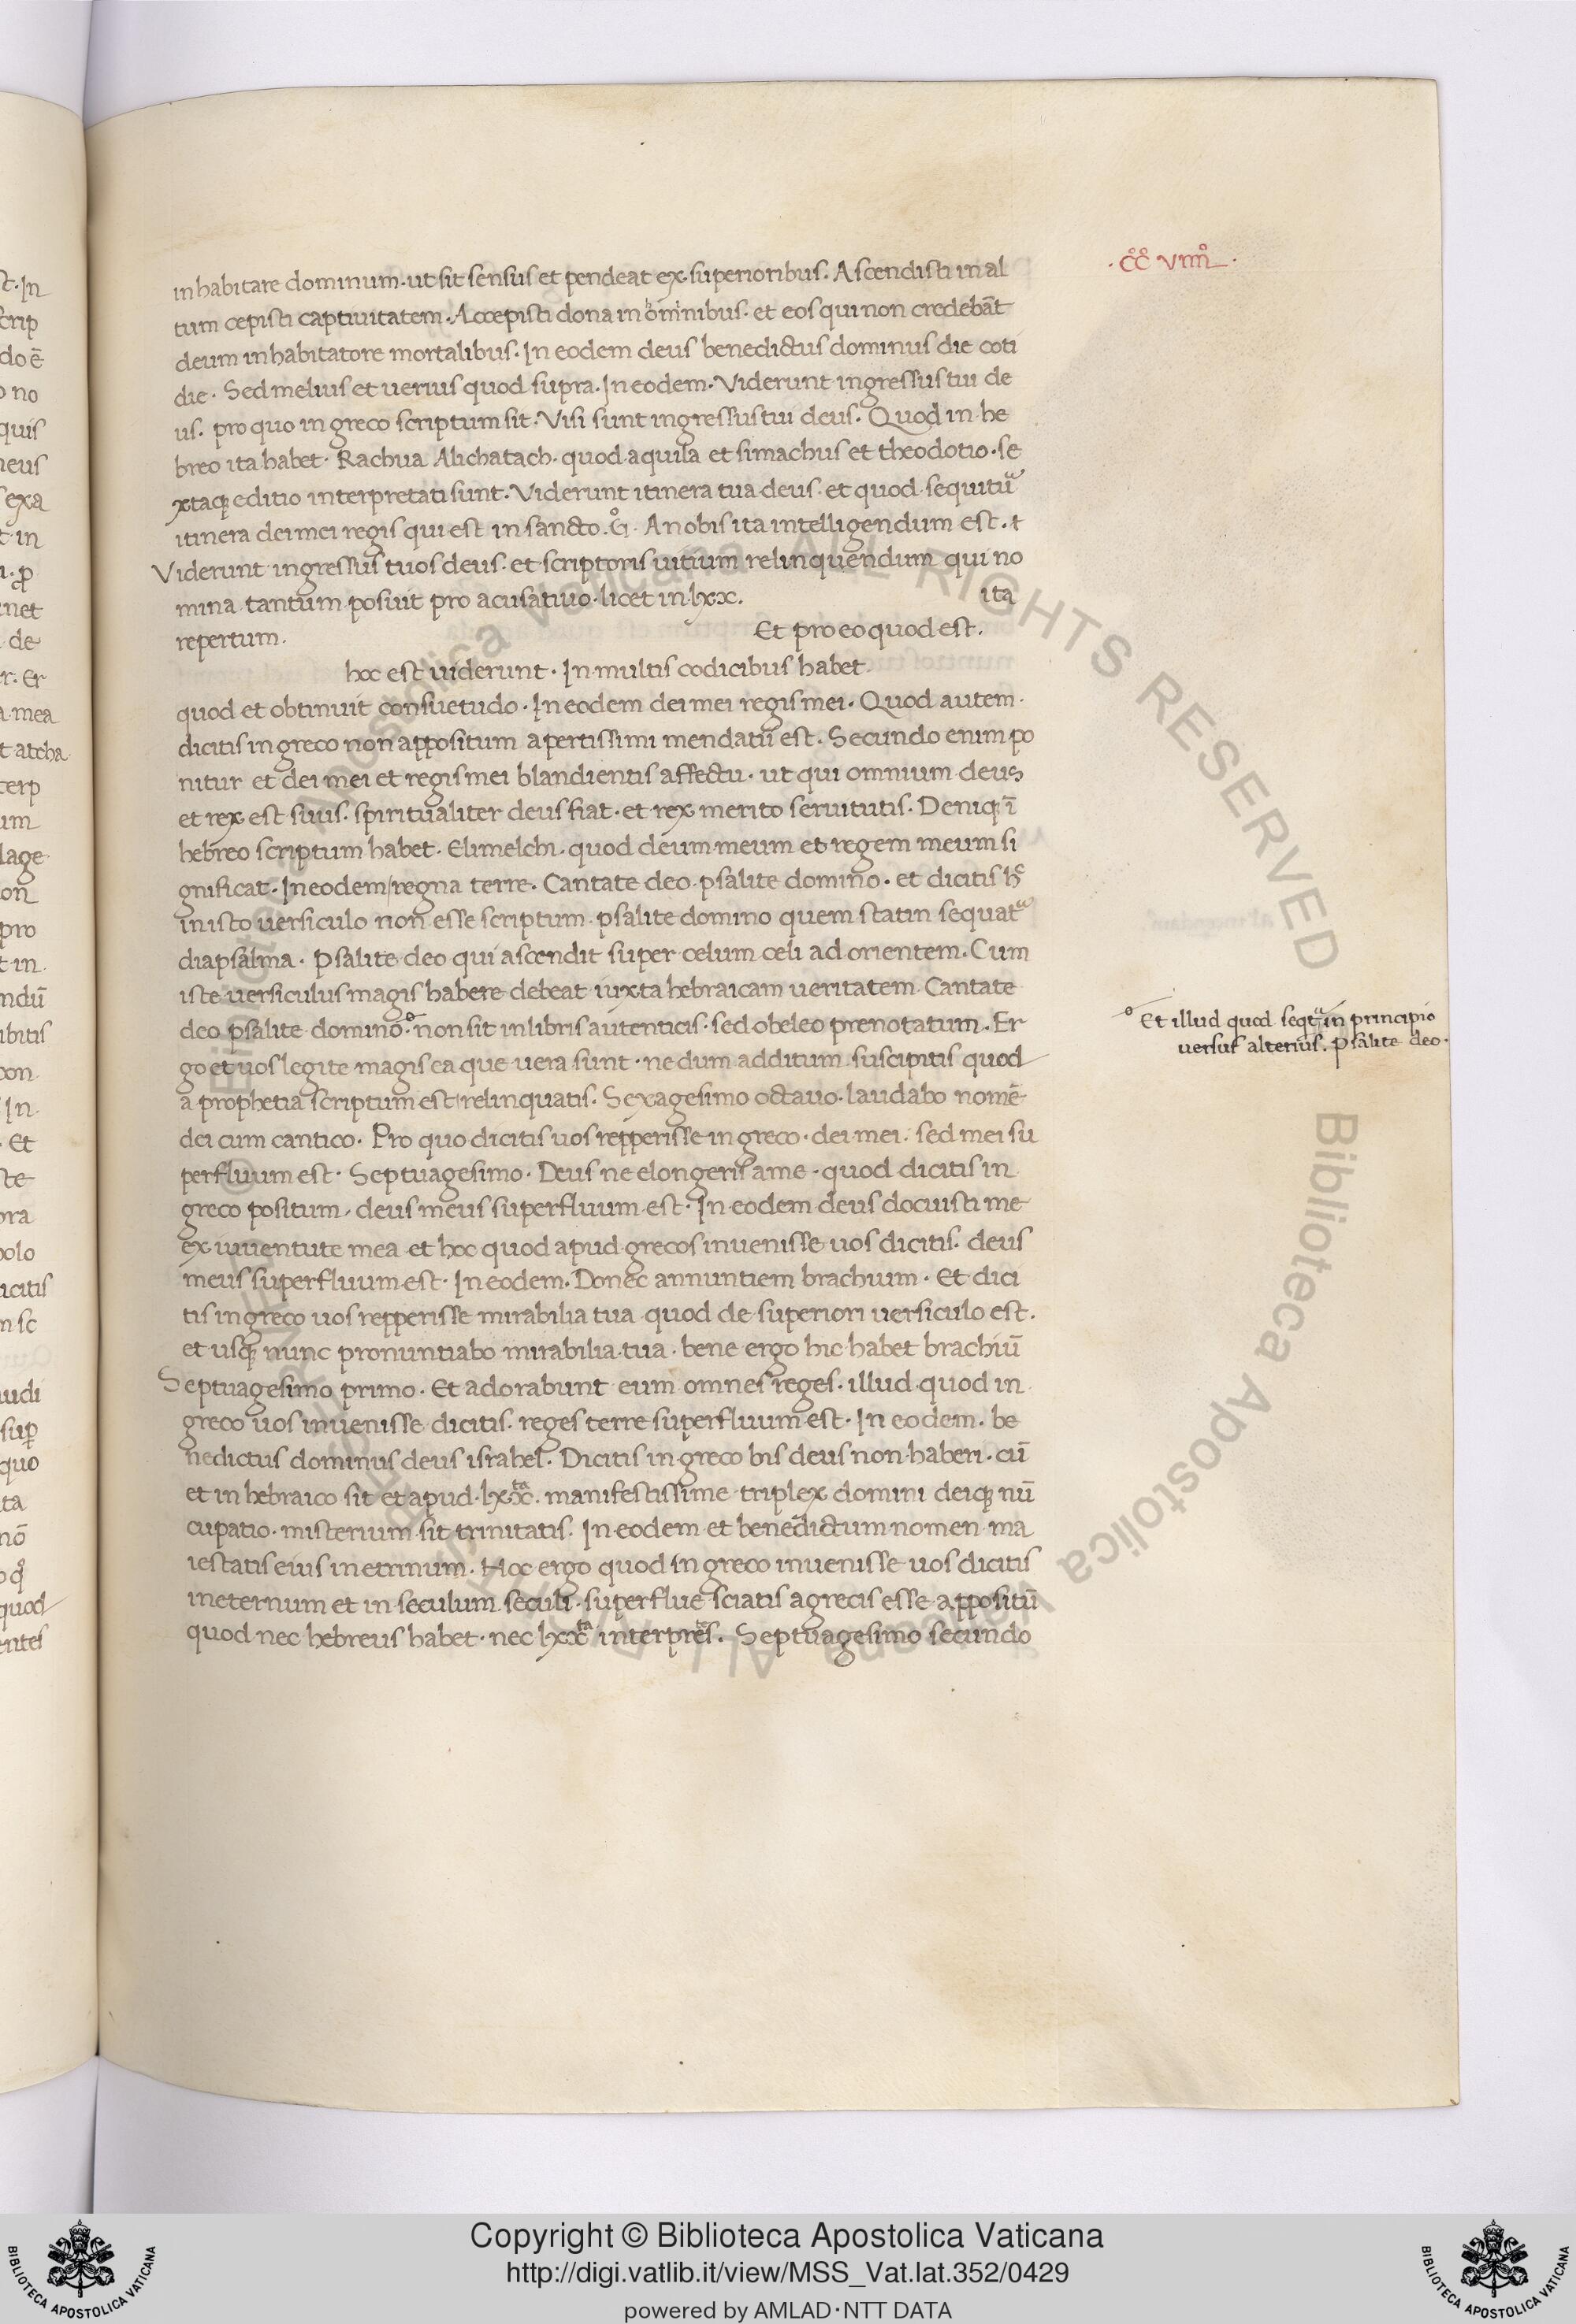 ·CC VIIII·
inhabitare dominum·ut sit sensus et pendeat ex·superioribus. Ascendisti in al
tum cepisti captiuitatem. Accepisti dona in hominibus· et eos qui non credebāt
deum inhabitatore mortalibus. In eodem deus benedictus dominus die coti
die· Sed melius et uerius quod supra. In eodem. Viderunt ingressus tui de
us. pro quo in greco scriptum sit· Visi sunt ingressus tui deus. Quod in he
breo ita habet· Rachua Alichatach· quod aquila et simachus et theodotio·se
xtaq; editio interpretati sunt. Viderunt itinera tua deus· et quod sequitu
itinera dei mei regis qui est in sancto. G· A nobis ita intelligendum est.
Viderunt ingressus tuos deus· et scriptoris uitium relinquendum qui no
mina tantum posuit pro acusatiuo·licet in·lxx. ita
repertum. Et pro eo quod est.
hoc est uiderunt· In multis codicibus habet.
quod et obtinuit consuetudo· In eodem dei mei regis mei· Quod autem·
dicitis in greco non appositum apertissimi mendatū est. Secundo enim po
nitur et dei mei et regis mei blandientis affectu· ut qui omnium deus
et rex est suus. spiritualiter deus fiat· et rex merito seruitutis. Deniq; ī
hebreo scriptum habet· Elimelchi· quod deum meum et regem meum si
gnificat· In eodem/regna terre· Cantate deo psalite domino· et dicitis h
in isto uersiculo non esse scriptum psalite domino quem statin sequat
diapsalma· Psalite deo qui ascendit super celum celi ad orientem. Cum
iste uersiculus magis habere debeat iuxta hebraicam ueritatem Cantate
deo psalite domino· non sit in libris autenticis· sed obeleo prenotatum. Er
go et uos legite magis ea que uera sunt· ne dum additum suscipitis quod
a prophetia scriptum est relinquatis. Sexagesimo octauo·laudabo nomē
dei cum cantico· Pro quo dicitis uos repperisse in greco· dei mei· sed mei su
perfluum est· Septuagesimo· Deus ne elongeris a me·quod dicitis in
greco positum, deus meus superfluum est· In eodem deus docuisti me
ex iuuentute mea et hoc quod apud grecos inuenisse uos dicitis· deus
meus superfluum est· In eodem. Donec annuntiem brachium· Et dici
tis in greco uos repperisse mirabilia tua quod de superiori uersiculo est.
et usq; nunc pronuntiabo mirabilia tua· bene ergo hic habet brachiū
Septuagesimo primo· Et adorabunt eum omnes reges· illud quod in
greco uos inuenisse dicitis· reges terre superfluum est· In eodem· be
nedictus dominus deus israhel. Dicitis in greco bis deus non haberi· cū
et in hebraico sit et apud·lxx. manifestissime triplex domini deiq; nū
cupatio· misterium sit trinitatis· In eodem et benedictum nomen ma
iestatis eius in etrnum. Hoc ergo quod in greco inuenisse uos dicitis
in eternum et in seculum seculi·superflue sciatis a grecis esse appositū
quod nec hebreus habet· nec lxx interpres. Septuagesimo secundo
Et illud quod seqt in principio
uersus alterius. Psalite deo·
Copyright © Biblioteca Apostolica Vaticana
http://digi.vatlib.it/view/MSS_Vat.lat.352/0429
powered by AMLAD·NTT DATA
BIBLIOTECA APOSTOLICA VATICANA
BIBLIOTECA APOSTOLICA VATICANA